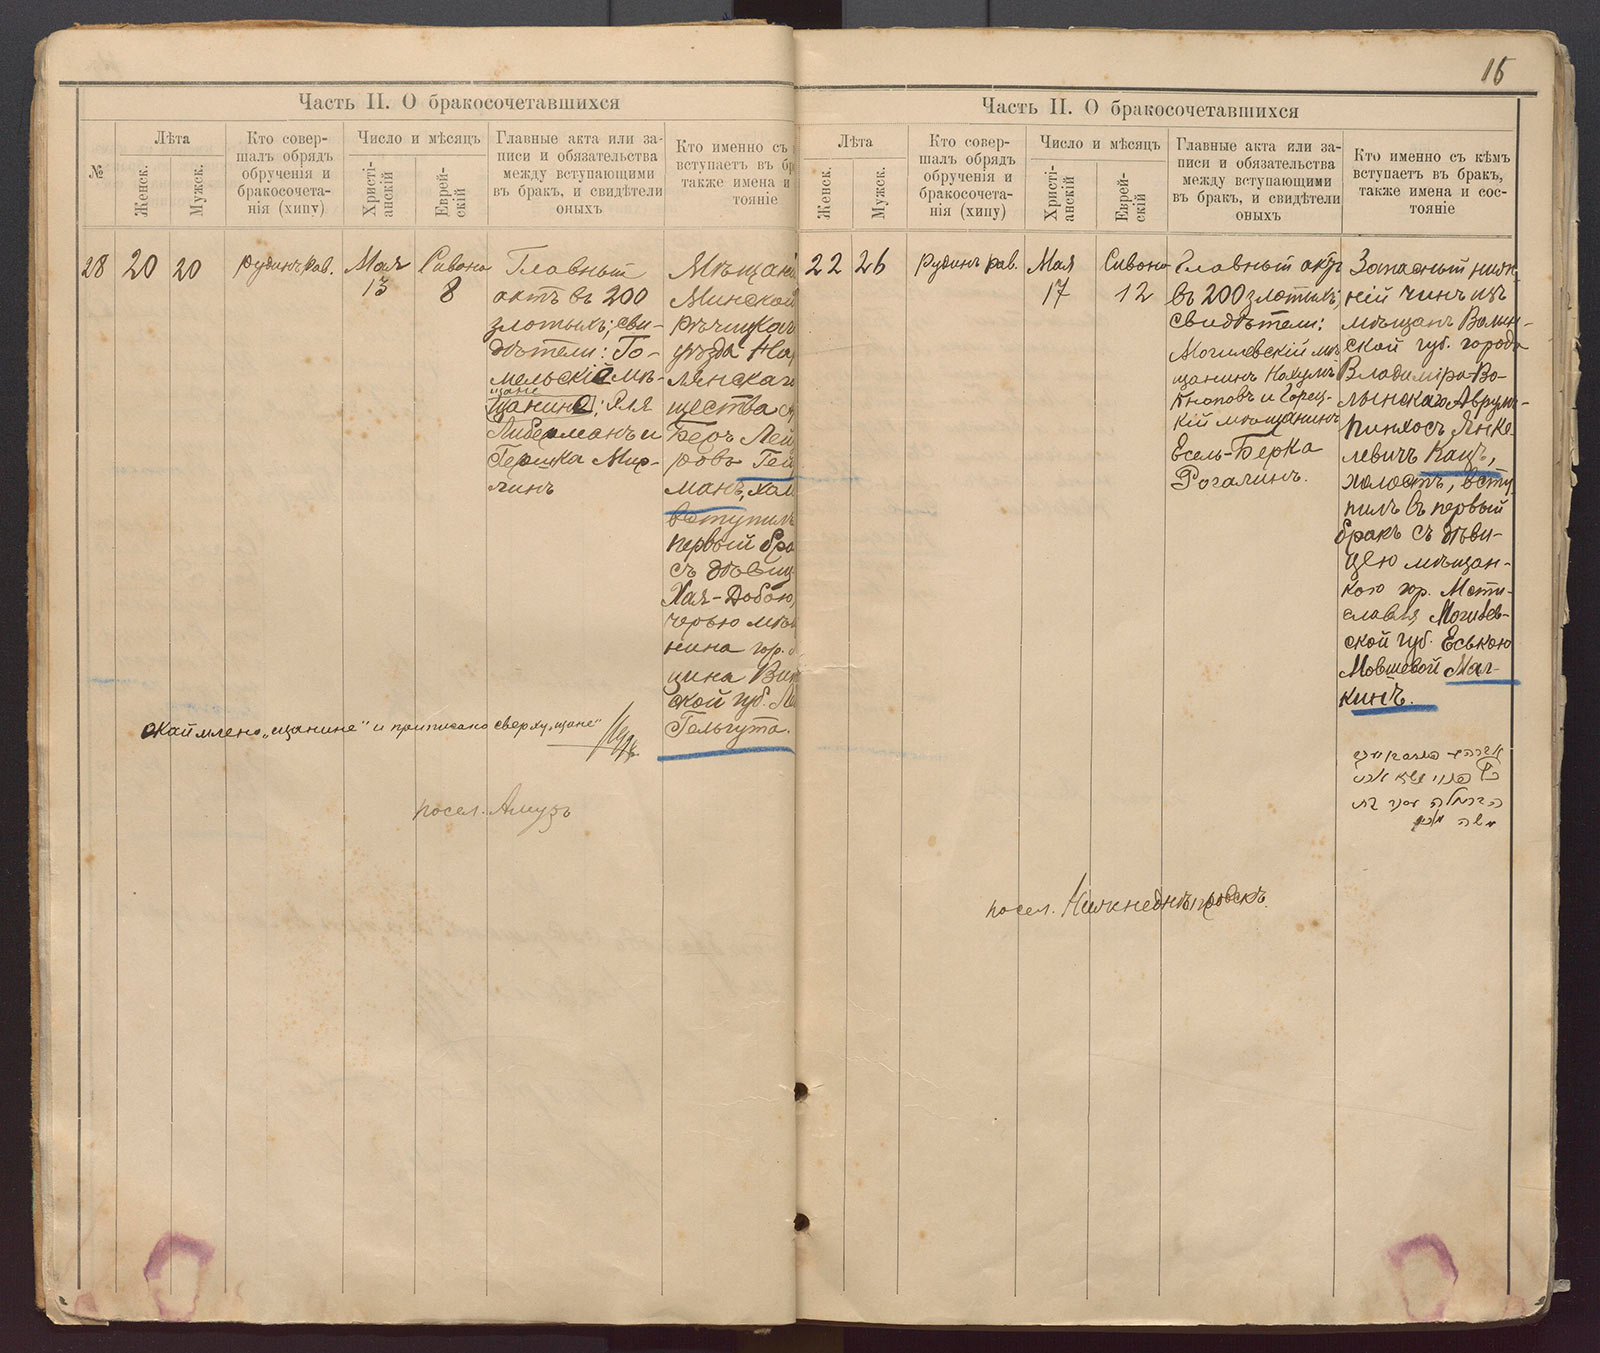 Часть II. О бракосочетавшихся
№
Лѣта
Женск.
Мужск.
Кто совер-
шалъ обрядъ
обрученія и
бракосочета-
нія (хипу)
Число и мѣсяцъ
Христі-
анскій
Еврей-
скій
Главные акта или за-
писи и обязательства
между вступающими
въ бракъ, и свидѣтели
оныхъ
Кто именно съ
вступаетъ въ бр
также имена и
тояніе
28
20
20
Рудинъ Рав.
Мая
13
Сивона
8
Главный
актъ въ 200
злотыхъ; сви-
дѣтели: Го-
мельскіе мѣ-
щане
щанине; Эля
Либерманъ и
Гершка Мир-
кинъ
Мѣщани
Минской
Рѣчицкаго
уѣзда На
лянскаго
щества
Беръ Лей
ровъ Гей
манъ, хол
вступилъ
первый бра
съ дѣвиц
Хая-Добою,
черью мѣщ
нина гор.
цина Вит
ской губ. Ле
Гельгута.
Окаймлено „щанине" и приписано сверху „щане"
посел. Амуръ
15
Часть II. О бракосочетавшихся
Лѣта
Женск.
Мужск.
Кто совер-
шалъ обрядъ
обрученія и
бракосочета-
нія (хипу)
Число и мѣсяцъ
Христі-
анскій
Еврей-
скій
Главные акта или за-
писи и обязательства
между вступающими
въ бракъ, и свидѣтели
оныхъ
Кто именно съ кѣмъ
вступаетъ въ бракъ,
также имена и сос-
тояніе
22
26
Рудинъ Рав.
Мая
17
Сивона
12
Главный актъ
въ 200 злотыхъ;
свидѣтели:
Могилевскій мѣ
щанинъ Нахумъ
Кноповъ и Горец-
кій мѣщанинъ
Есель-Берка
Рогалинъ.
Запасный ниж-
ній чинъ изъ
мѣщанъ Волын-
ской губ. города
Владиміра-Во-
лынскаго Аврумъ-
Пинхосъ Янке-
левичъ Кацъ,
холостъ, всту
пилъ въ первый
бракъ съ дѣви-
цею мѣщан-
кою гор. Мсти-
славля Могилев-
ской губ. Еською
Мовшевой Мал-
кинъ.
משה
посел. Нижнеднѣпровскъ.